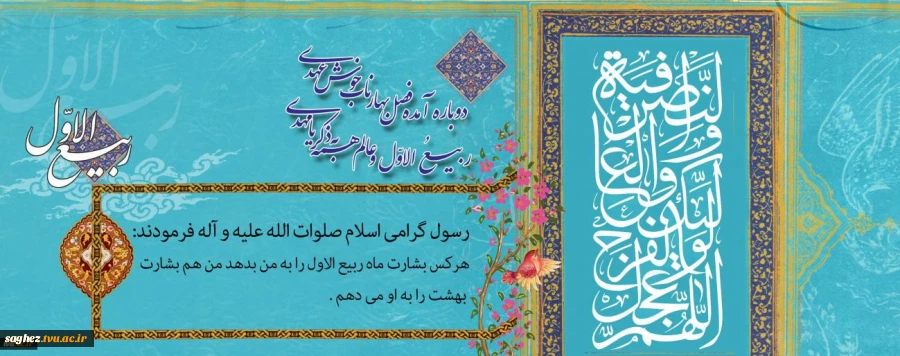 دوباره آمده فصل بهار ناب خوش عهدی
ربیعُ الاوّل و عالم همه به ذکر یا مهدی
ربیع الاوّل
رسول گرامی اسلام صلوات الله علیه و آله فرمودند:
هرکس بشارت ماه ربیع الاول را به من بدهد من هم بشارت
بهشت را به او می دهم .
اللّهمّ عجّل
لولیّک الفرج
والعا
فیة والنّصر
saghez.tvu.ac.ir